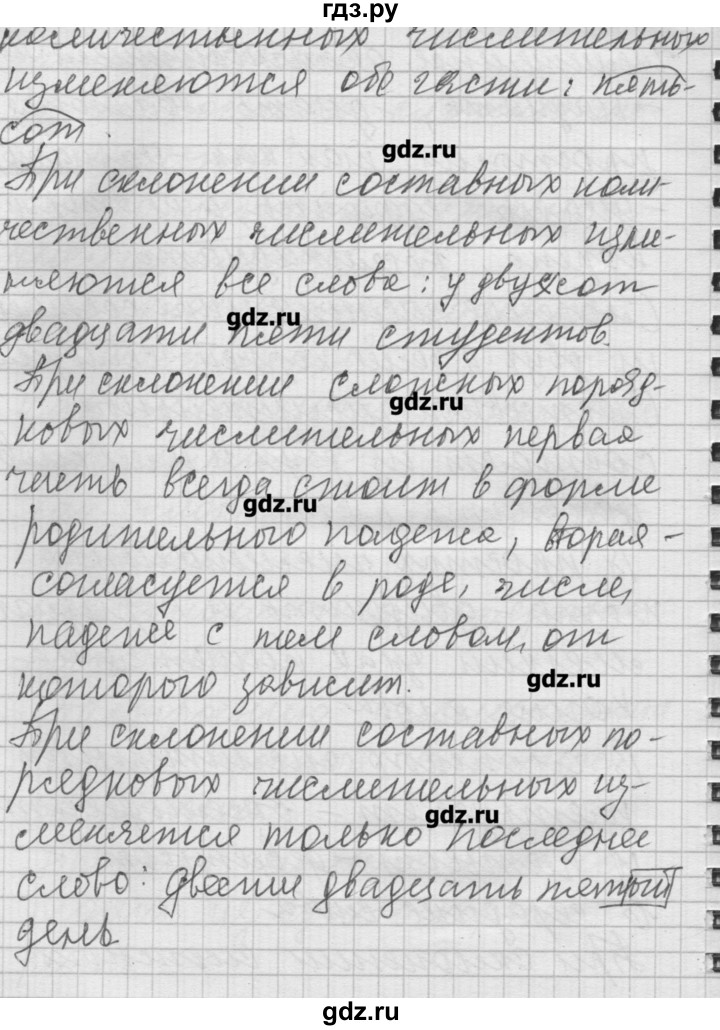 гдз.ру
количественных числительных
изменяются обе части: пять-
сот.
gdz.ru
При склонении составных коли-
чественных числительных изме-
няются все слова: у двухсот
gdz.ru
двадцати пяти студентов.
При склонении сложных поряд-
gdz.ru
ковых числительных первая
часть всегда стоит в форме
gdz.ru
родительного падежа, вторая -
согласуется в роде, числе,
падеже с тем словом, от
которого зависит.
gdz.ru
При склонении составных по-
рядковых числительных из-
меняется только последнее
gdz.ru
слово: двести двадцать пятый
день
gdz.ru